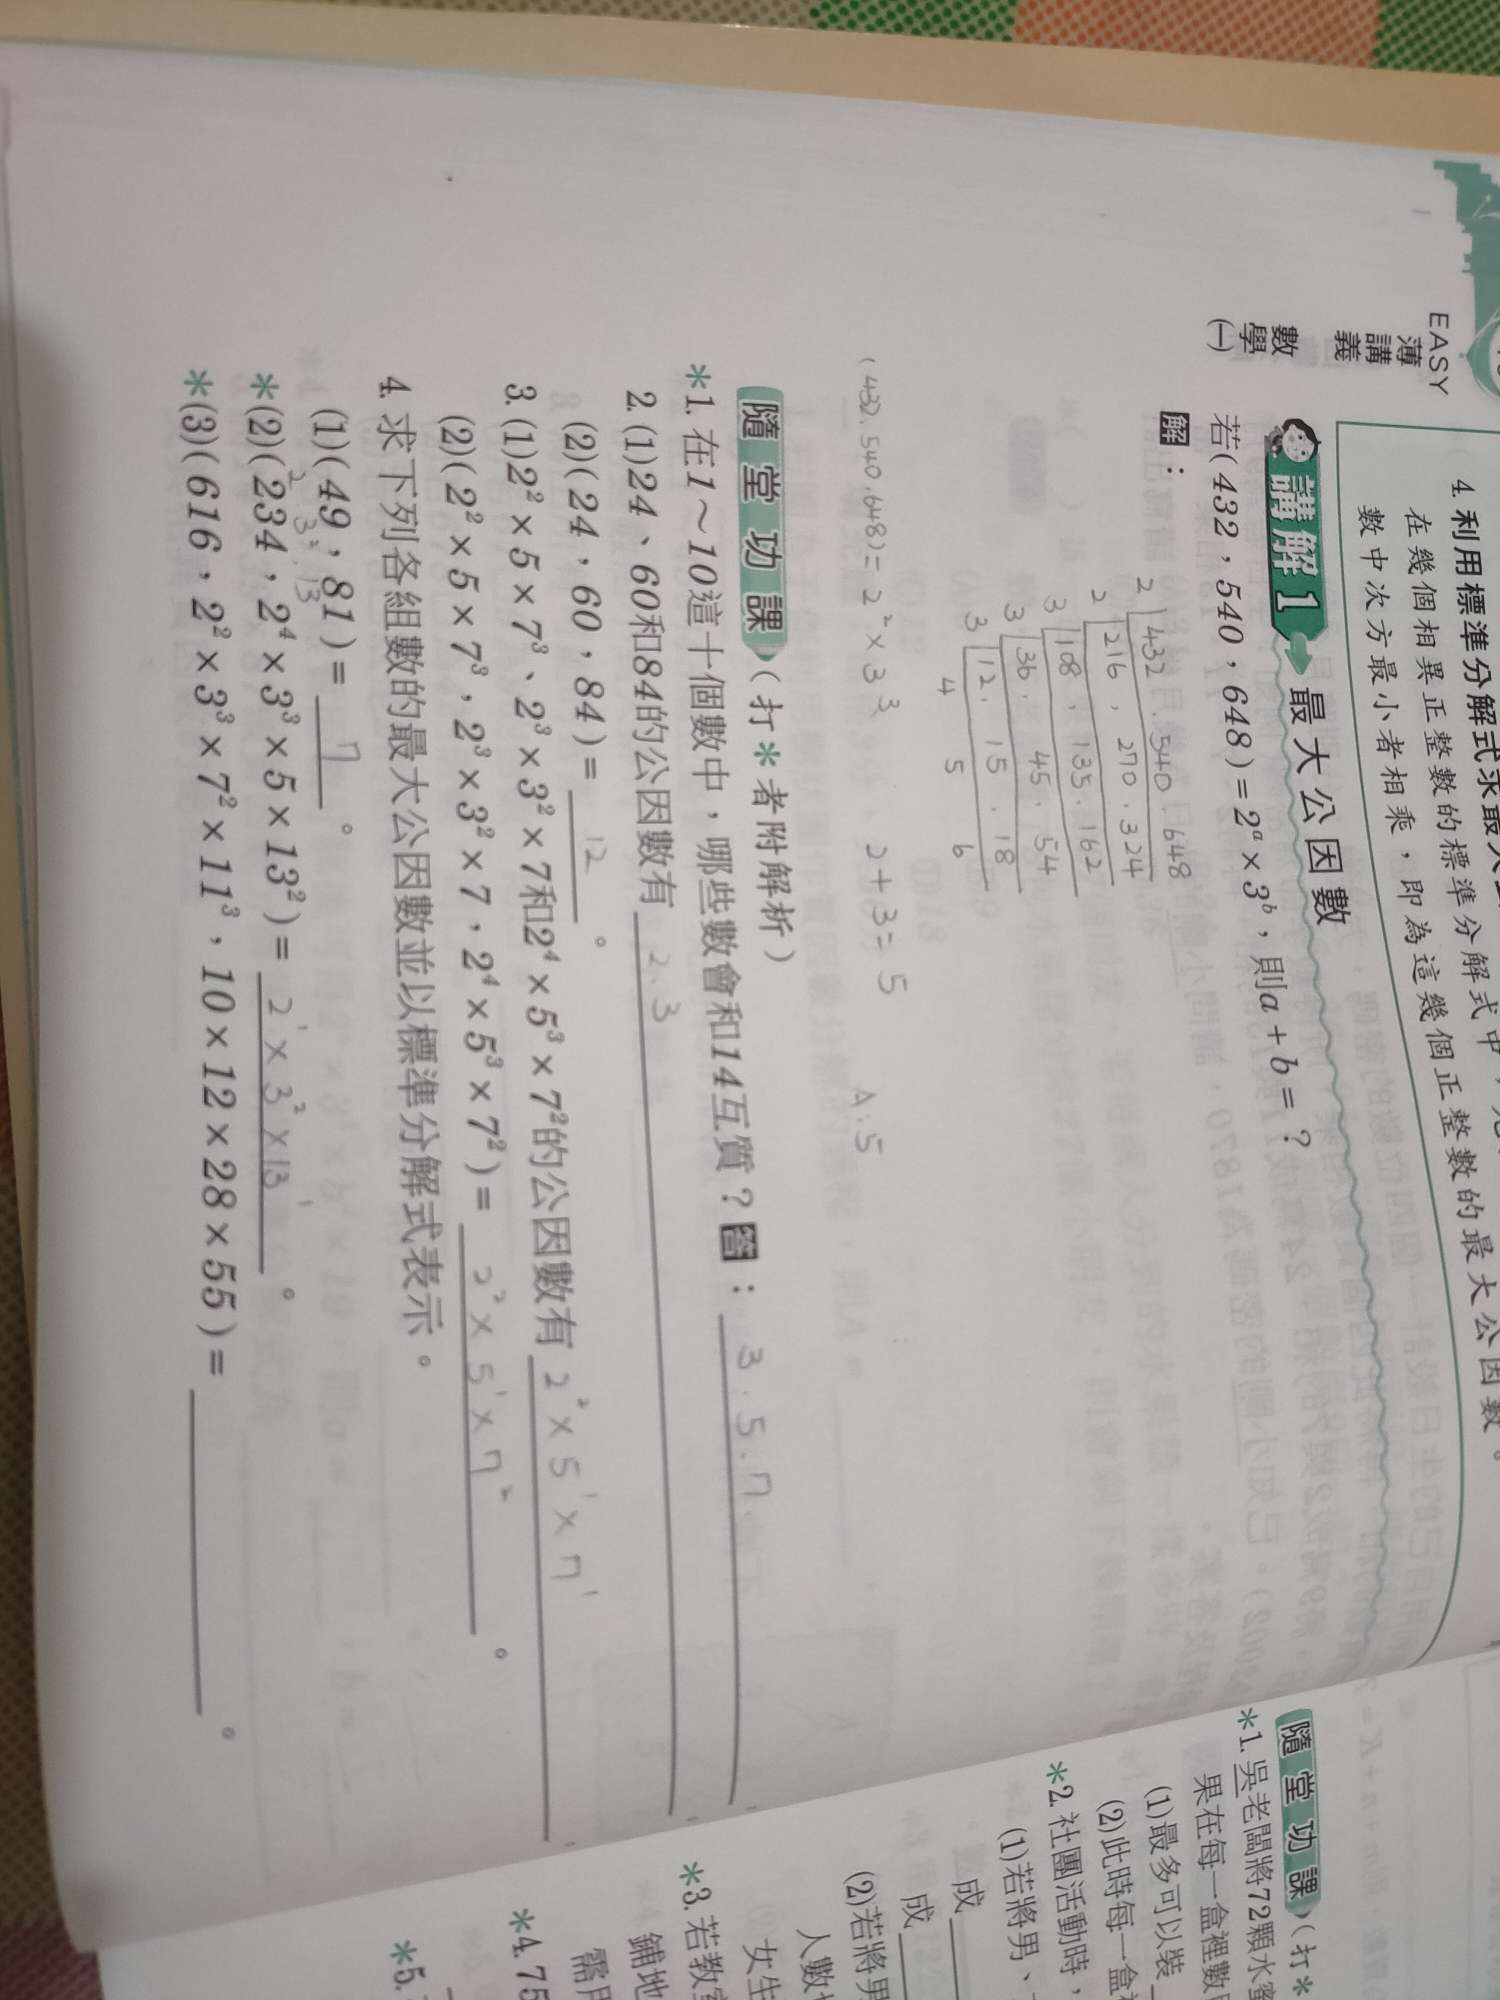 EASY
薄講義
數學
(一)
4.利用標準分解式求最大
在幾個相異正整數的標準分解式中，
數中次方最小者相乘，即為這幾個正整數的最大公因數。
講解1 最大公因數
若(432，540，648)=2ᵃ×3ᵇ，則a+b=？
解：
2 432.540.648
2 216，270.324
3 108，135.162
3 36．45．54
3 12．15．18
4 5 6
(432.540.648)=2²×3³ 2+3=5 A:5
隨堂功課（打＊者附解析）
＊1.在1～10這十個數中，哪些數會和14互質？答：3.5.7
2.(1)24、60和84的公因數有 2.3
(2)(24，60，84)= 12 。
3.(1)2²×5×7³、2³×3²×7和2⁴×5³×7²的公因數有 2²×5¹×7¹
(2)(2²×5×7³，2³×3²×7，2⁴×5³×7²)= 2²×5¹×7² 。
4.求下列各組數的最大公因數並以標準分解式表示。
(1)(49，81)= 7 。
＊(2)(234，2⁴×3³×5×13²)= 2¹×3²×13¹ 。
2 3² 13
＊(3)(616，2²×3³×7²×11³，10×12×28×55)= 。
隨堂功課（打＊
＊1.吳老闆將72顆水蜜
果在每一盒裡數
(1)最多可以裝
(2)此時每一盒
＊2.社團活動時，
(1)若將男、
成
(2)若將男
成
人數
女生
＊3.若教室
鋪地
需用
＊4.75
＊5.